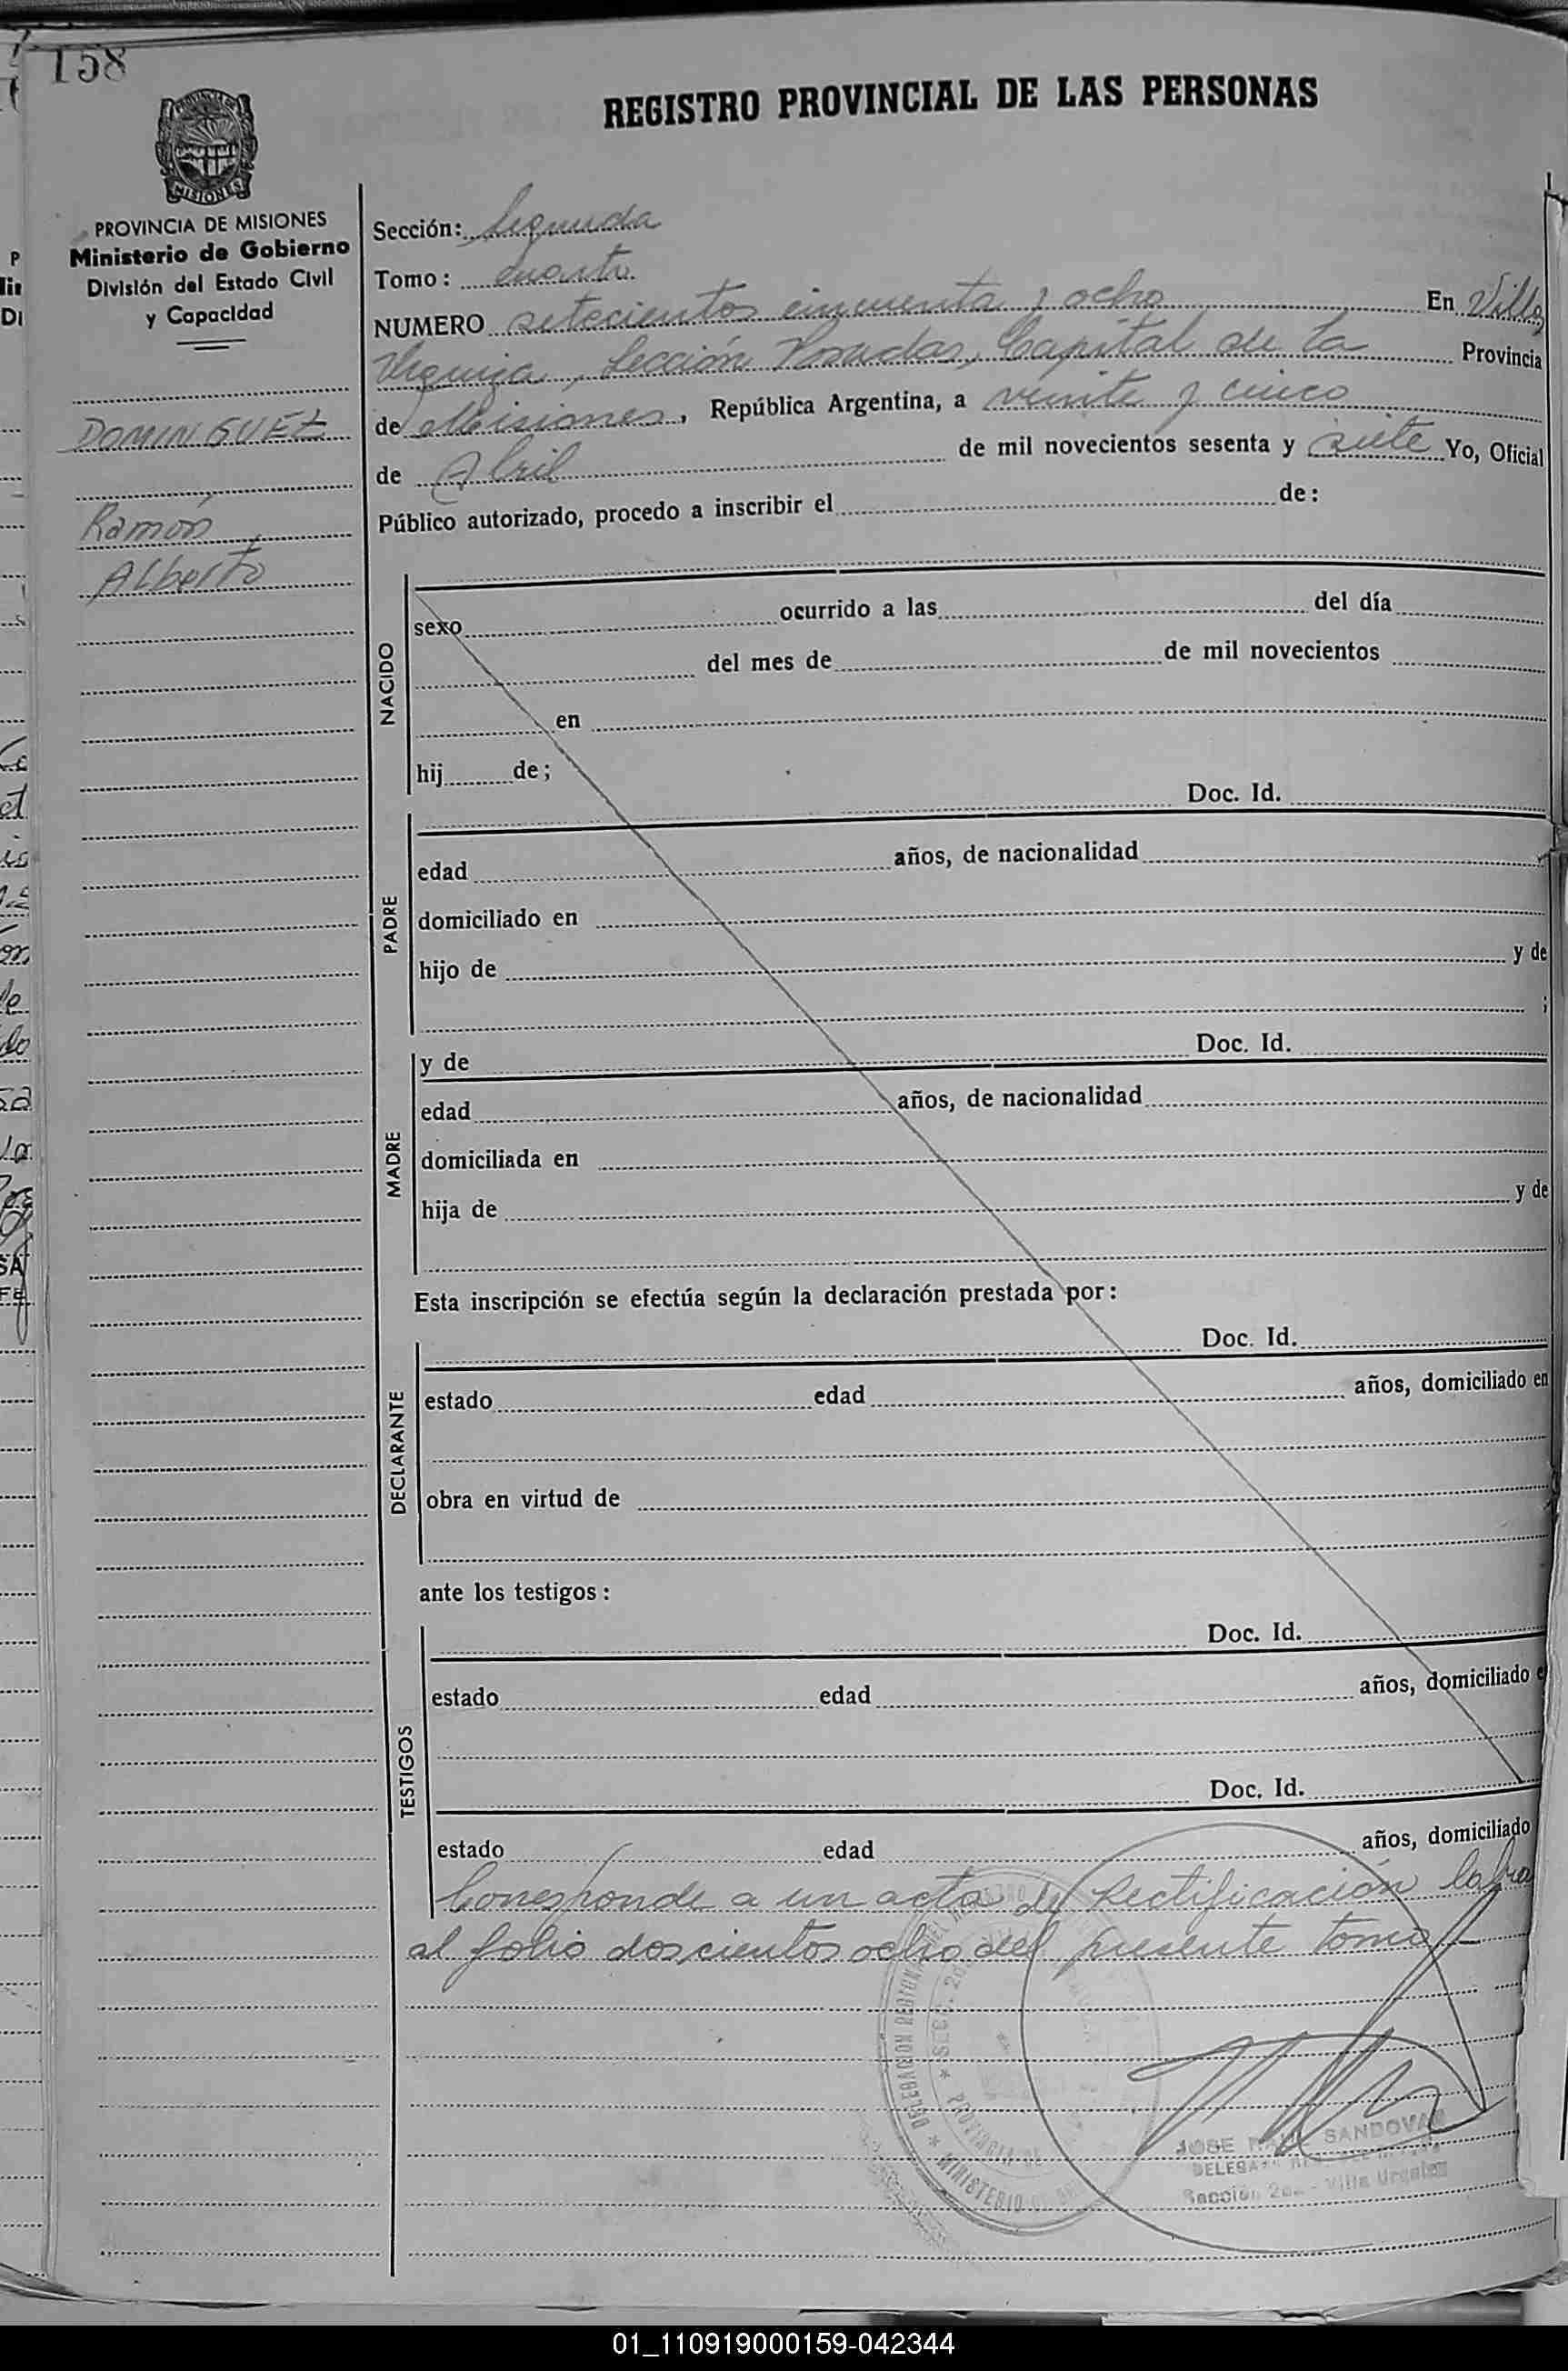 158
REGISTRO PROVINCIAL DE LAS PERSONAS
MISIONES
PROVINCIA DE MISIONES
Ministerio de Gobierno
División del Estado Civil
y Capacidad
DOMINGUEZ
Ramón
Alberto
Sección: Segunda
Tomo: cuarto
NUMERO setecientos cincuenta y ocho En Villa
Urquiza, Sección Posadas, Capital de la Provincia
de Misiones, República Argentina, a veinte y cinco
de Abril de mil novecientos sesenta y siete Yo, Oficial
Público autorizado, procedo a inscribir el de:
NACIDO
sexo ocurrido a las del día
del mes de de mil novecientos
en
hij de;
Doc. Id.
PADRE
edad años, de nacionalidad
domiciliado en
hijo de y de
;
MADRE
y de Doc. Id.
edad años, de nacionalidad
domiciliada en
hija de y de
Esta inscripción se efectúa según la declaración prestada por:
DECLARANTE
Doc. Id.
estado edad años, domiciliado en
obra en virtud de
ante los testigos:
TESTIGOS
Doc. Id.
estado edad años, domiciliado e
Doc. Id.
estado edad años, domiciliado
Corresponde a un acta de Rectificación labra
al folio doscientos ocho del presente tomo
DELEGACION REGIONAL DEL
SECC. 2da
PROVINCIA DE
MINISTERIO DE
JOSE RAUL SANDOVAL
Sección 2da - Villa Urquiza
01_110919000159-042344